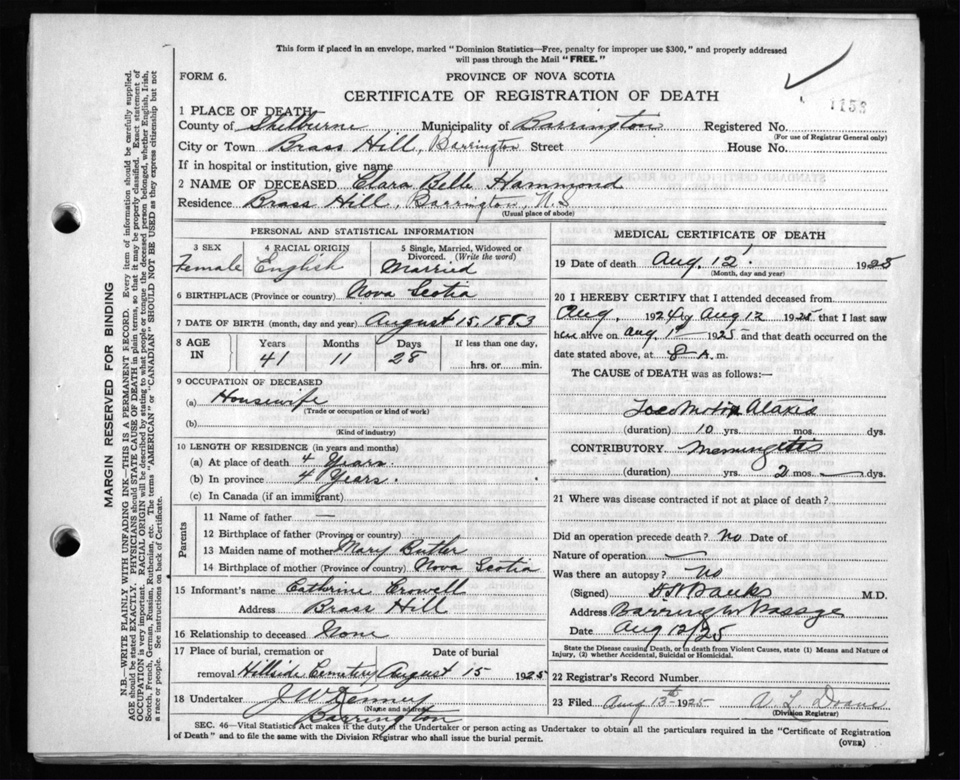 This form if placed in an envelope, marked "Dominion Statistics—Free, penalty for improper use $300," and properly addressed
will pass through the Mail "FREE."
FORM 6.
PROVINCE OF NOVA SCOTIA
CERTIFICATE OF REGISTRATION OF DEATH
1153
1 PLACE OF DEATH
County of Shelburne Municipality of Barrington Registered No.
(For use of Registrar General only)
City or Town Brass Hill, Barrington Street House No.
If in hospital or institution, give name
2 NAME OF DECEASED Clara Belle Hammond
Residence Brass Hill, Barrington, N.S
(Usual place of abode)
PERSONAL AND STATISTICAL INFORMATION
3 SEX 4 RACIAL ORIGIN 5 Single, Married, Widowed or
Divorced. (Write the word)
Female English Married
6 BIRTHPLACE (Province or country) Nova Scotia
7 DATE OF BIRTH (month, day and year) August 15, 1883
8 AGE IN Years Months Days If less than one day,
41 11 28 hrs. or min.
9 OCCUPATION OF DECEASED
(a) Housewife
(Trade or occupation or kind of work)
(b)
(Kind of industry)
10 LENGTH OF RESIDENCE (in years and months)
(a) At place of death 4 Years.
(b) In province 4 Years.
(c) In Canada (if an immigrant)
Parents
11 Name of father —
12 Birthplace of father (Province or country)
13 Maiden name of mother Mary Butler
14 Birthplace of mother (Province or country) Nova Scotia
15 Informant's name Catherine Crowell
Address Brass Hill
16 Relationship to deceased None
17 Place of burial, cremation or Date of burial
removal Hillside Cemetery August 15 1925
18 Undertaker J W Kenney
(Name and address)
Barrington
MEDICAL CERTIFICATE OF DEATH
19 Date of death Aug. 12 1925
(Month, day and year)
20 I HEREBY CERTIFY that I attended deceased from
Aug, 1924 Aug 12 1925 that I last saw
her alive on Aug 1st 1925 and that death occurred on the
date stated above, at 8 A. m.
The CAUSE of DEATH was as follows:—
Locomotor Ataxia
(duration) 10 yrs. mos. dys.
CONTRIBUTORY Meningitis
(duration) yrs. 2 mos. — dys.
21 Where was disease contracted if not at place of death?
Did an operation precede death? no Date of
Nature of operation —
Was there an autopsy? No
(Signed) Banks M.D.
Address Barrington Passage
Date Aug 12/25
State the Disease causing Death, or in death from Violent Causes, state (1) Means and Nature of
Injury, (2) whether Accidental, Suicidal or Homicidal.
22 Registrar's Record Number
23 Filed Aug 13th 1925 Doane
(Division Registrar)
SEC. 46—Vital Statistics Act makes it the duty of the Undertaker or person acting as Undertaker to obtain all the particulars required in the "Certificate of Registration
of Death" and to file the same with the Division Registrar who shall issue the burial permit.
(OVER)
MARGIN RESERVED FOR BINDING
N.B.—WRITE PLAINLY WITH UNFADING INK—THIS IS A PERMANENT RECORD. Every item of information should be carefully supplied.
AGE should be stated EXACTLY. PHYSICIANS should STATE CAUSE OF DEATH in plain terms, so that it may be properly classified. Exact statement of
OCCUPATION is very important. RACIAL ORIGIN will be described by stating to what people or tongue the deceased person belonged, whether English, Irish,
Scotch, French, German, Russian, Ruthenian, etc. The terms "AMERICAN" or "CANADIAN" SHOULD NOT BE USED as they express citizenship but not
a race or people. See instructions on back of Certificate.